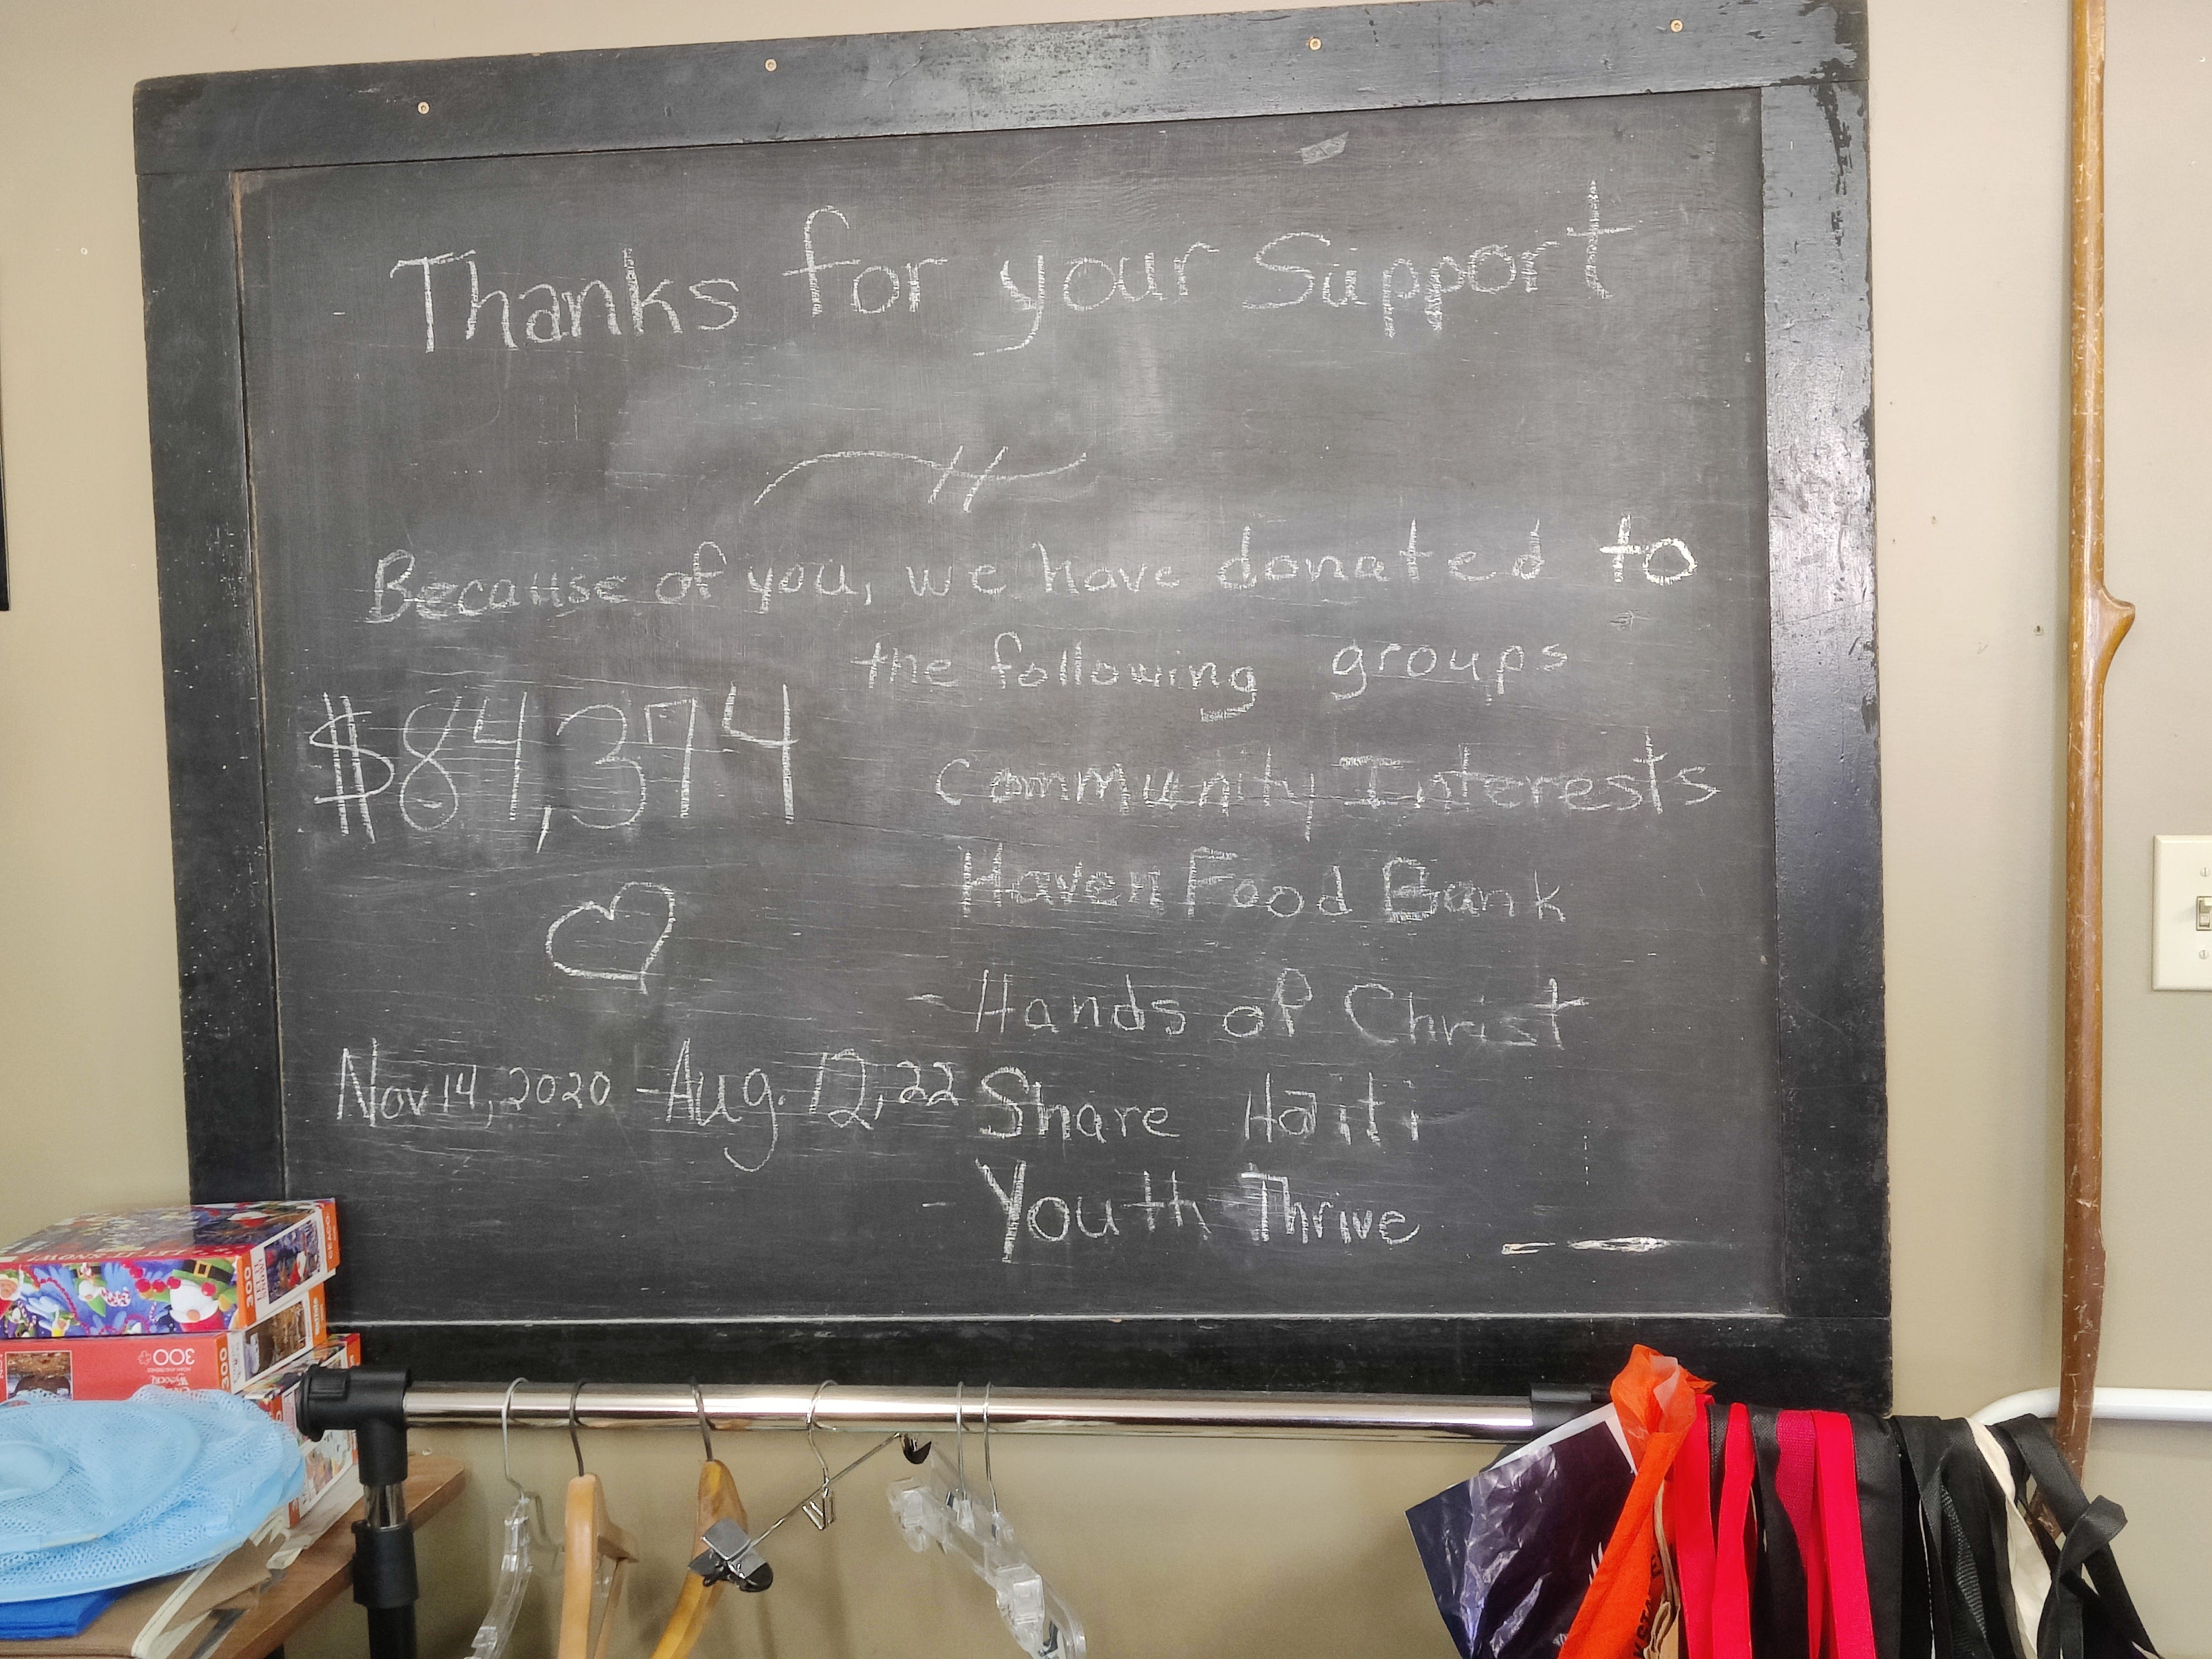 Thanks for your Support
Because of you, we have donated to
the following groups
$84,374
Community Interests
Haven Food Bank
- Hands of Christ
Nov 14, 2020 - Aug. 12, 22
Share Haiti
- Youth Thrive
300
300
300